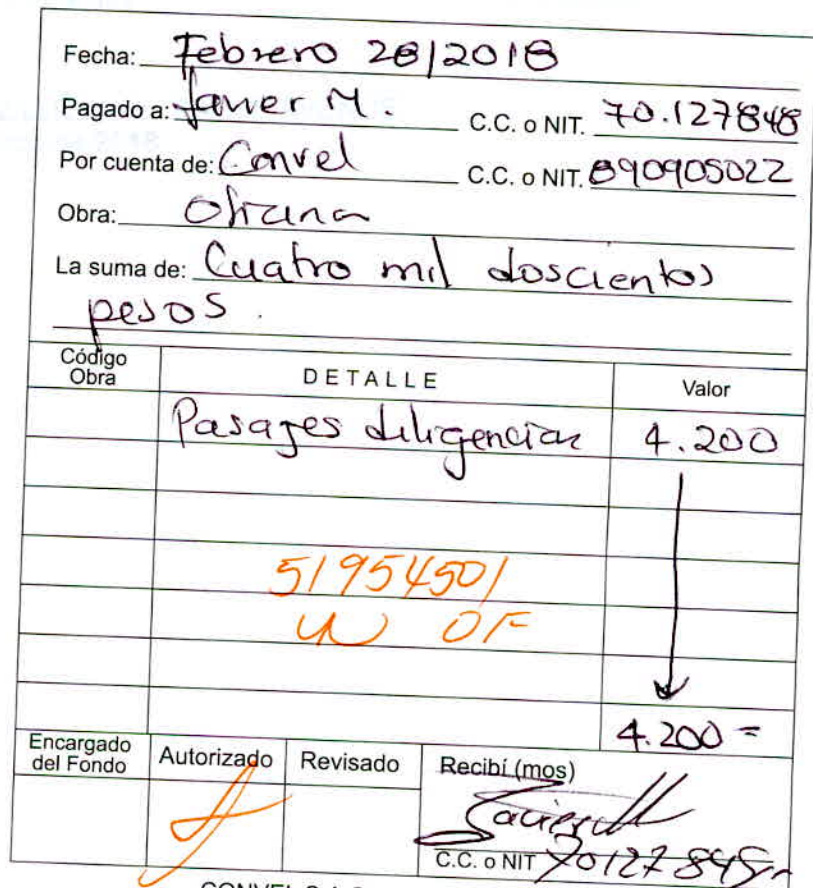 Fecha: Febrero 28/2018
Pagado a: Javier M. C.C. o NIT. 70.127848
Por cuenta de: Convel C.C. o NIT. 890905022
Obra: Oficina
La suma de: Cuatro mil doscientos
pesos.
Código Obra DETALLE Valor
Pasajes diligencias 4.200
51954501
OF
4.200 =
Encargado del Fondo Autorizado Revisado Recibí (mos)
Javier M
C.C. o NIT 70127848